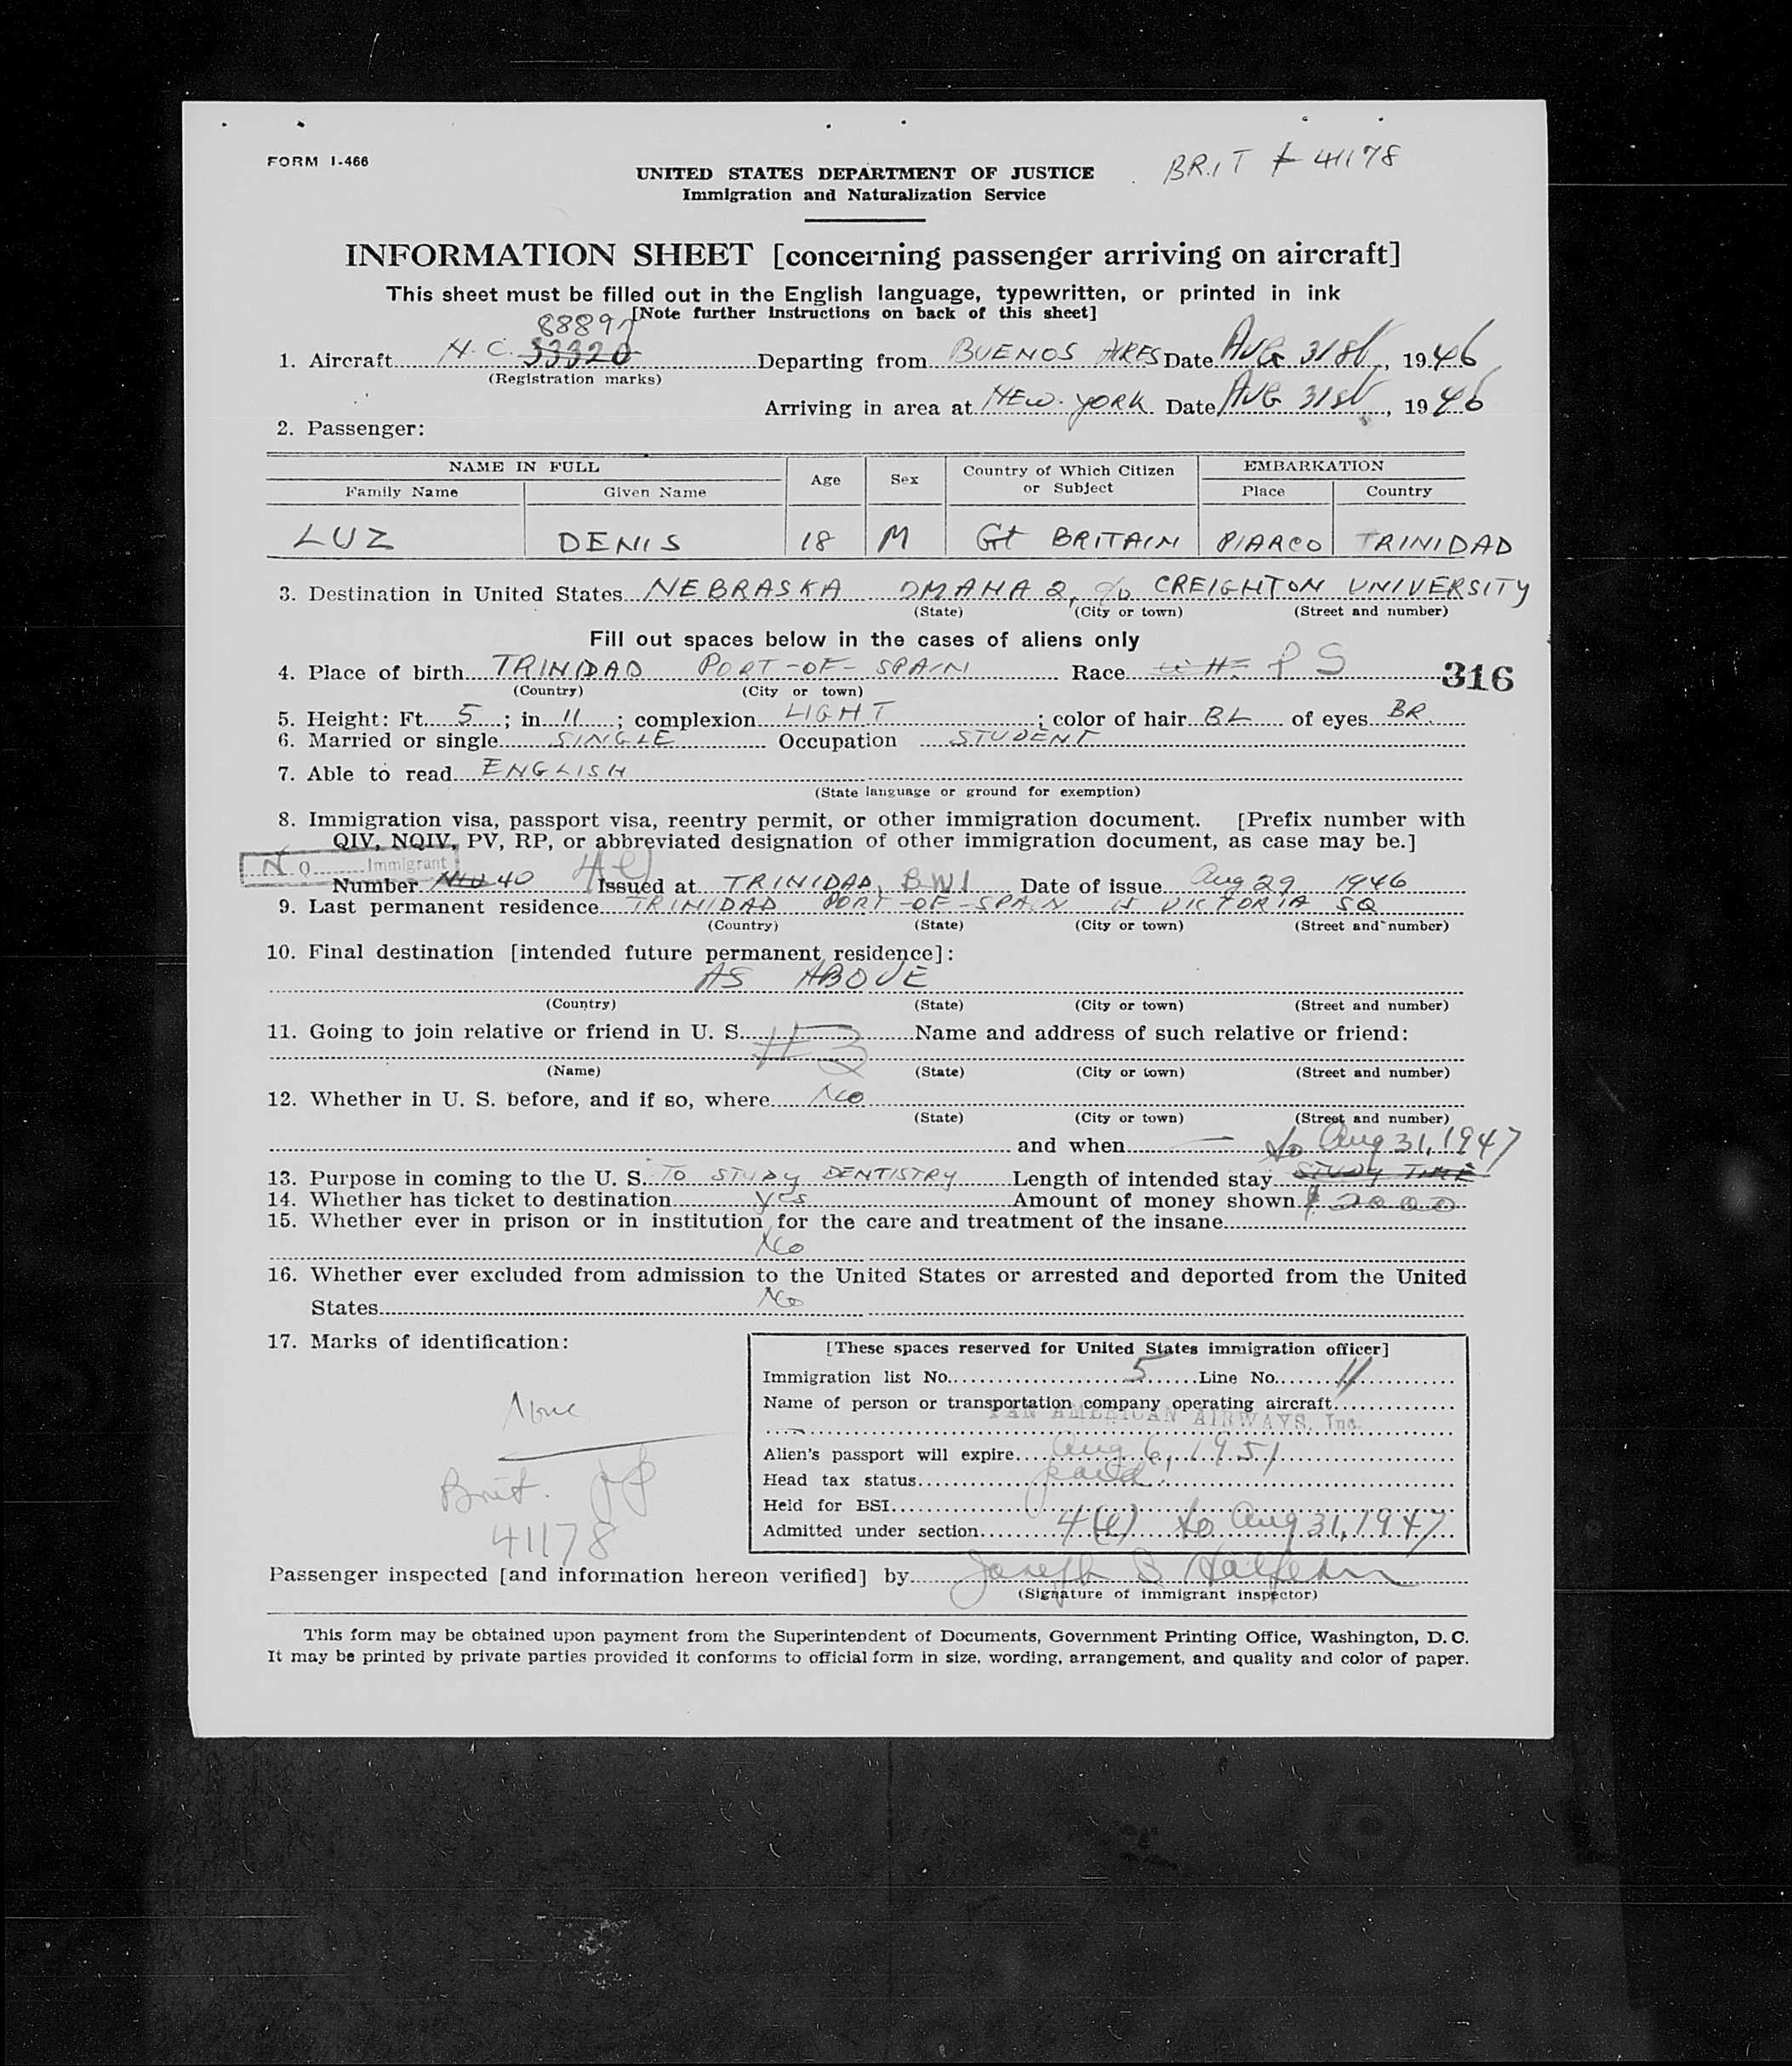 FORM I-466
BRIT # 41178
UNITED STATES DEPARTMENT OF JUSTICE
Immigration and Naturalization Service
INFORMATION SHEET [concerning passenger arriving on aircraft]
This sheet must be filled out in the English language, typewritten, or printed in ink
[Note further instructions on back of this sheet]
88897
1. Aircraft N.C. 33320 Departing from BUENOS AIRES Date AUG 31st, 1946
(Registration marks)
Arriving in area at NEW YORK Date AUG 31st, 1946
2. Passenger:
NAME IN FULL Age Sex Country of Which Citizen or Subject EMBARKATION
Family Name Given Name Place Country
LUZ DENIS 18 M Gt BRITAIN PIARCO TRINIDAD
3. Destination in United States NEBRASKA OMAHA 2, c/o CREIGHTON UNIVERSITY
(State) (City or town) (Street and number)
Fill out spaces below in the cases of aliens only
4. Place of birth TRINIDAD PORT-OF-SPAIN Race PS 316
(Country) (City or town)
5. Height: Ft. 5; in 11; complexion LIGHT; color of hair BL of eyes BR.
6. Married or single SINGLE Occupation STUDENT
7. Able to read ENGLISH
(State language or ground for exemption)
8. Immigration visa, passport visa, reentry permit, or other immigration document. [Prefix number with
QIV, NQIV, PV, RP, or abbreviated designation of other immigration document, as case may be.]
Immigrant
Number 40 Issued at TRINIDAD, BWI Date of issue Aug 29 1946
9. Last permanent residence TRINIDAD PORT-OF-SPAIN 15 VICTORIA SQ
(Country) (State) (City or town) (Street and number)
10. Final destination [intended future permanent residence]:
AS ABOVE
(Country) (State) (City or town) (Street and number)
11. Going to join relative or friend in U. S. #3 Name and address of such relative or friend:
(Name) (State) (City or town) (Street and number)
12. Whether in U. S. before, and if so, where No
(State) (City or town) (Street and number)
and when — to Aug 31, 1947
13. Purpose in coming to the U. S. TO STUDY DENTISTRY Length of intended stay STUDY TIME
14. Whether has ticket to destination yes Amount of money shown $ 2000
15. Whether ever in prison or in institution for the care and treatment of the insane
No
16. Whether ever excluded from admission to the United States or arrested and deported from the United
States No
17. Marks of identification:
None
Brit.
41178
[These spaces reserved for United States immigration officer]
Immigration list No. 5 Line No. 11
Name of person or transportation company operating aircraft
PAN AMERICAN AIRWAYS, Inc.
Alien's passport will expire Aug 6, 1951
Head tax status paid
Held for BSI
Admitted under section 4(e) to Aug 31, 1947
Passenger inspected [and information hereon verified] by Joseph B Halpern
(Signature of immigrant inspector)
This form may be obtained upon payment from the Superintendent of Documents, Government Printing Office, Washington, D. C.
It may be printed by private parties provided it conforms to official form in size, wording, arrangement, and quality and color of paper.